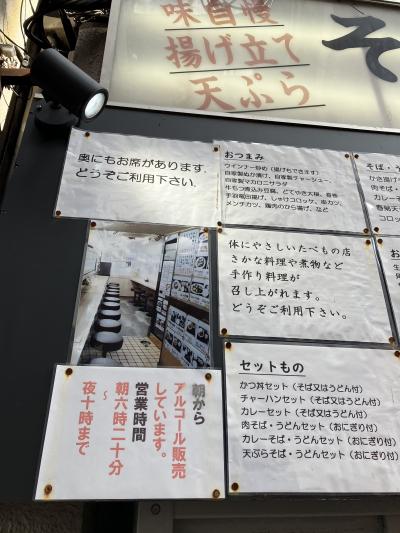 味自慢
揚げ立て
天ぷら
そ
奥にもお席があります。
どうぞご利用下さい。
おつまみ
ウインナー炒め(揚げもできます)・
自家製ぬか漬け、自家製チャーシュー
自家製マカロニサラダ
牛もつ煮込み豆腐、どてやき大根、春巻
手羽竜田揚げ、しゃけコロッケ、串カツ、
メンチカツ、鶏肉のから揚げ、など
そば・う
かき揚げ
肉そば・
カレーそ
春菊天
コロッ
体にやさしいたべもの店
さかな料理や煮物など
手作り料理が
召し上がれます。
どうぞご利用下さい。
セットもの
かつ丼セット(そば又はうどん付)
チャーハンセット(そば又はうどん付)
カレーセット(そば又はうどん付)
肉そば・うどんセット(おにぎり付)
カレーそば・うどんセット(おにぎり付)
天ぷらそば・うどんセット(おにぎり付)
朝から
アルコール販売
しています。
営業時間
朝六時二十分
~
夜十時まで